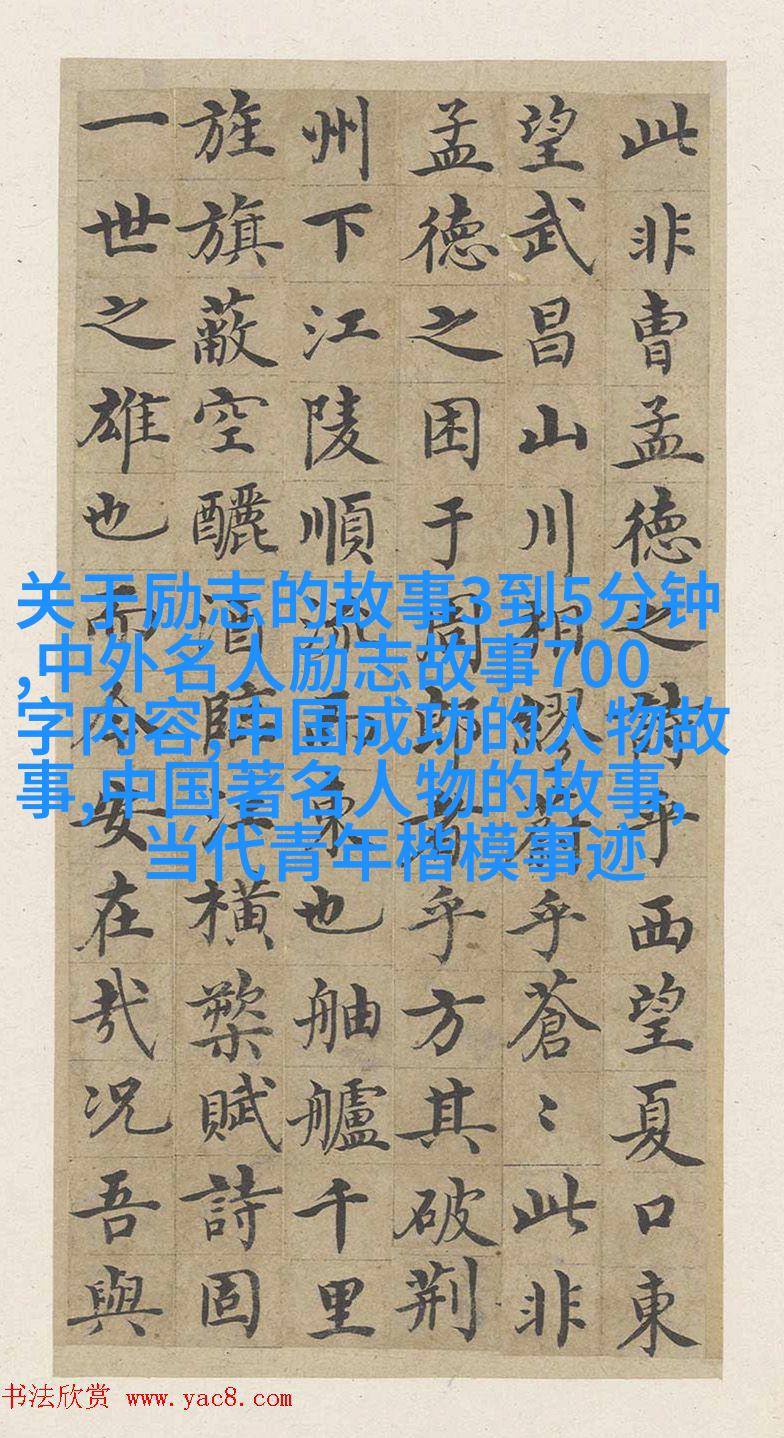 此非曹孟德之詩乎西望夏口東
望武昌山川相繆乎蒼〻此非
孟德之困于周郎者乎方其破荆
州下江陵順流而東也舳艫千里
旌旗蔽空釃酒臨江橫槊賦詩固
一世之雄也而今安在哉况吾與
关于励志的故事3到5分钟
,中外名人励志故事700
字内容,中国成功的人物故
事,中国著名人物的故事,
当代青年楷模事迹
书法欣赏 www.yac8.com